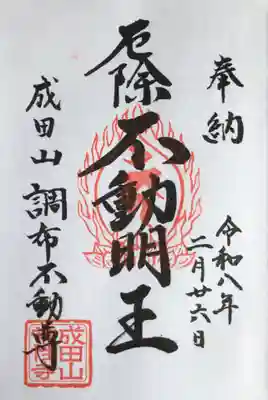 奉納
令和八年
二月廿六日
厄除
不動明王
成田山
調布不動尊
成田山